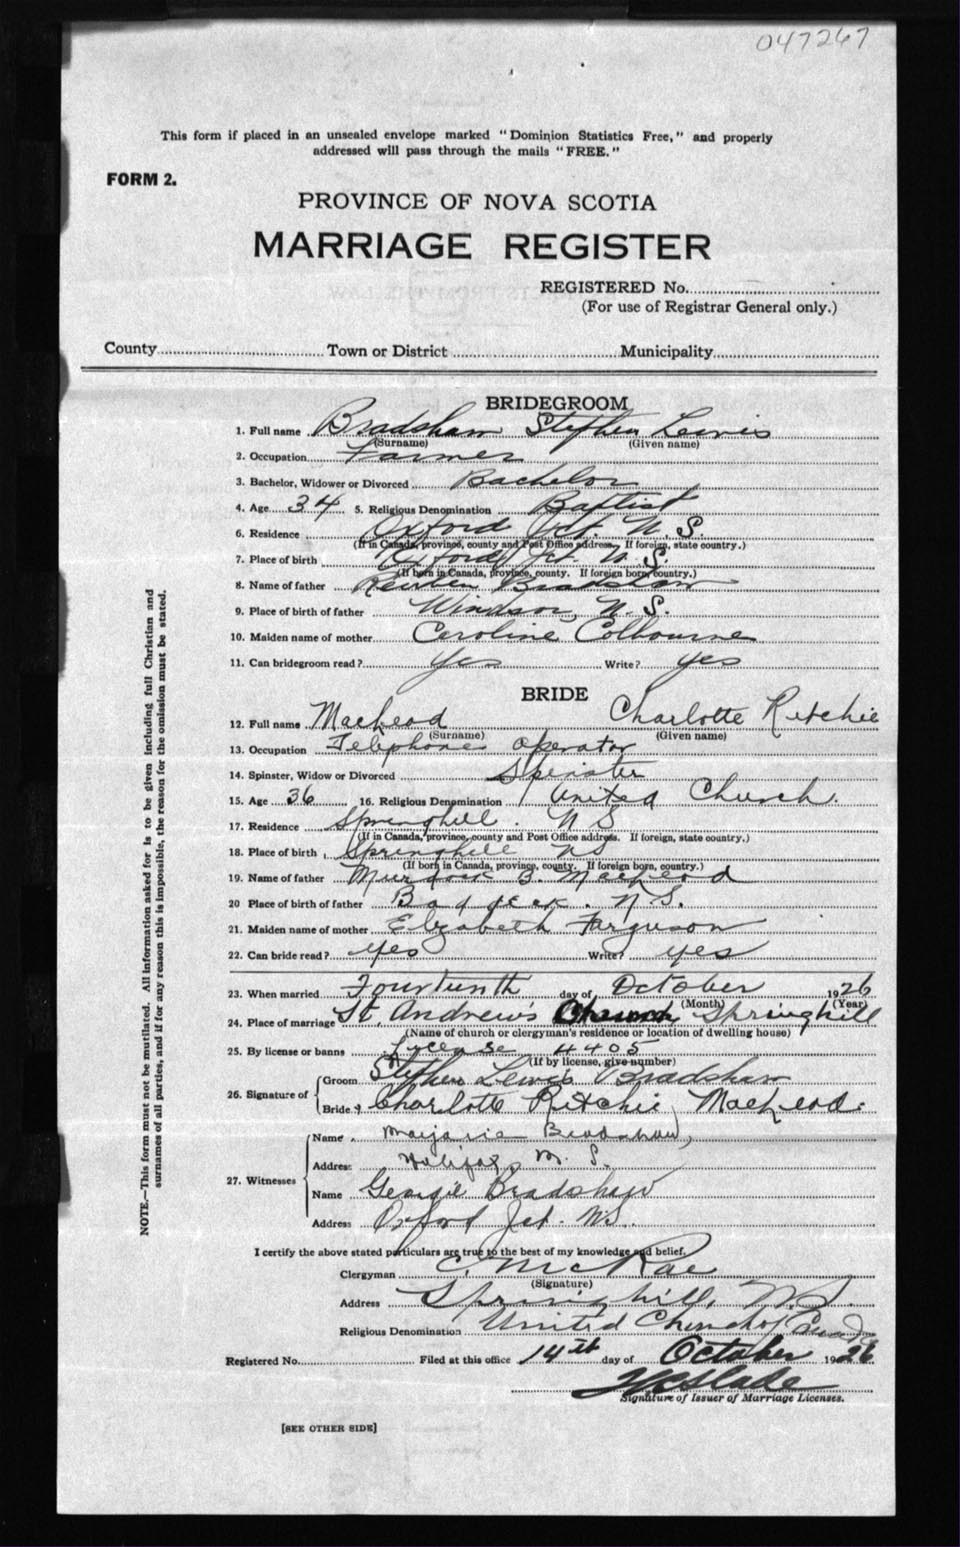 047267
This form if placed in an unsealed envelope marked "Dominion Statistics Free," and properly
addressed will pass through the mails "FREE."
FORM 2.
PROVINCE OF NOVA SCOTIA
MARRIAGE REGISTER
REGISTERED No.
(For use of Registrar General only.)
County Town or District Municipality
BRIDEGROOM
1. Full name Bradshaw Stephen Lewis
(Surname) (Given name)
2. Occupation Farmer
3. Bachelor, Widower or Divorced Bachelor
4. Age 34 5. Religious Denomination Baptist
6. Residence Oxford Jct. N.S.
(If in Canada, province, county and Post Office address. If foreign, state country.)
7. Place of birth Oxford Jct. N.S.
(If born in Canada, province, county. If foreign born, country.)
8. Name of father Reuben Bradshaw
9. Place of birth of father Windsor, N.S.
10. Maiden name of mother Caroline Colbourne
11. Can bridegroom read? Yes Write? yes
BRIDE
12. Full name MacLeod Charlotte Ritchie
(Surname) (Given name)
13. Occupation Telephone operator
14. Spinster, Widow or Divorced Spinster
15. Age 36 16. Religious Denomination United Church.
17. Residence Springhill. NS
(If in Canada, province, county and Post Office address. If foreign, state country.)
18. Place of birth Springhill NS
(If born in Canada, province, county. If foreign born, country.)
19. Name of father Murdock B. MacLeod
20 Place of birth of father Baddeck. N.S.
21. Maiden name of mother Elizabeth Ferguson
22. Can bride read? yes Write? yes
23. When married Fourteenth day of October 1926
(Month) (Year)
24. Place of marriage St. Andrew's Church Springhill
(Name of church or clergyman's residence or location of dwelling house)
25. By license or banns License 4405
(If by license, give number)
26. Signature of Groom Stephen Lewis Bradshaw
Bride Charlotte Ritchie MacLeod.
27. Witnesses
Name Marjorie Bradshaw,
Address Halifax, N.S.
Name Georgie Bradshaw
Address Oxford Jct. NS.
I certify the above stated particulars are true to the best of my knowledge and belief.
Clergyman C. McRae
(Signature)
Address Springhill, N.S.
Religious Denomination United Church of Canada
Registered No. Filed at this office 14th day of October 1926
Slade
Signature of Issuer of Marriage Licenses.
[SEE OTHER SIDE]
NOTE.—This form must not be mutilated. All information asked for is to be given including full Christian and
surnames of all parties, and if for any reason this is impossible, the reason for the omission must be stated.